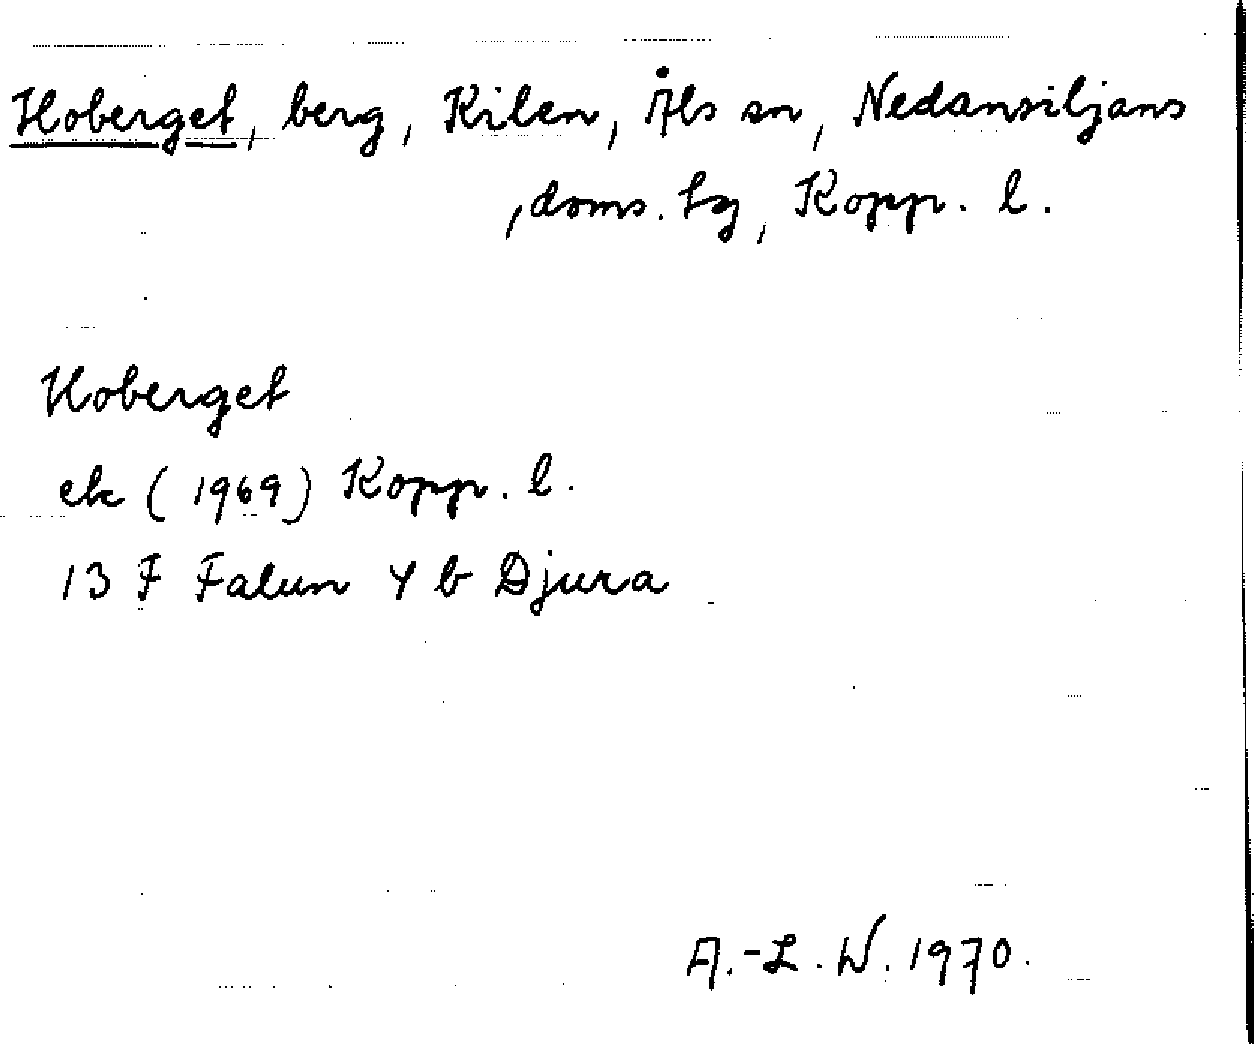 Hoberget, berg, Kilen, Åls sn, Nedansiljans
, doms. hg, Kopp. l.
Hoberget
ek (1969) Kopp. l.
13 F Falun Y b Djura
A.-L. W. 1970.